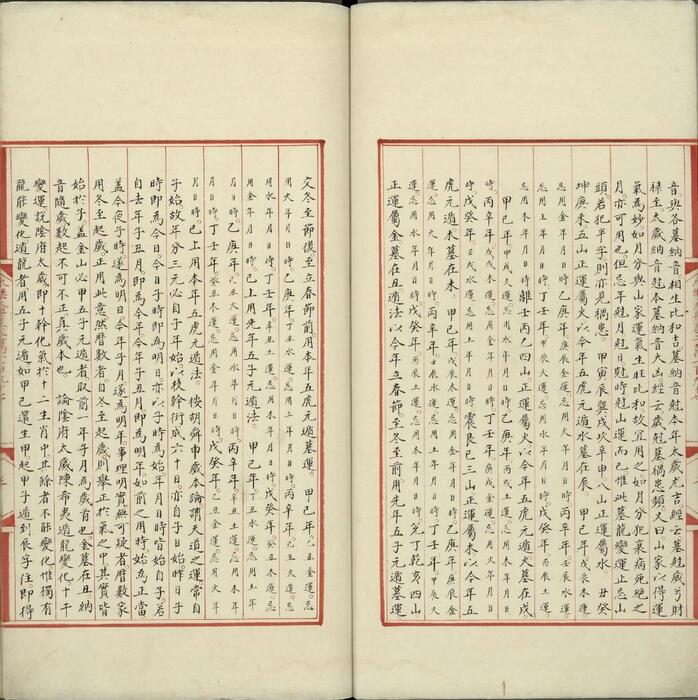 音與各墓納音相生比和吉墓納音本年太歲尤吉經云墓尅歲兮財
祿至太歲納音尅本墓納音大凶經云歲尅墓禍患頻又曰山家以得運
氣為妙如月分與山家運氣生旺比和故宜用之如月分犯衰病死絕之
月亦可用也但忌年尅月尅日尅時尅山運而已惟此墓龍變運正忌山
頭若犯半字則亦見禍患 甲寅辰巽戌坎辛申八山正運屬水丑癸
坤庚未五山正運屬火以今年五虎元遁水墓在辰 甲己年戊辰木運
忌用金年月日時乙庚年庚辰金運忌用火年月日時丙辛年壬辰水運
忌用土年月日時丁壬年甲辰火運忌用水年月日時戊癸年丙辰土運
忌用木年月日時離壬丙乙四山正運屬火以今年五虎元遁火墓在戌
甲己年甲戌火運忌用水年月日時乙庚年丙戌土運忌用木年月日
時丙辛年戊戌木運忌用金年月日時丁壬年庚戌金運忌用火年月日
時戊癸年壬戌水運忌用土年月日時震艮巳三山正運屬木以今年五
虎元遁木墓在未 甲己年
運忌用
正運屬金墓在丑遁法以今年立春節至冬至前用先年五子元遁墓運
交冬至節後至立春節前用本年五虎元遁墓運 甲己年乙丑金運忌
用火年月日時乙庚年丁丑水運忌用土年月日時丙辛年己丑火運忌
用水年月日時丁壬年辛丑土運忌用木年月日時戊癸年癸丑木運忌
用金年月日時已上用先年五子元遁法 甲己年丁丑水運忌用土年
月日時乙庚年己丑火運忌用水年月日時丙辛年辛丑土運忌用木年
月日時丁壬年癸丑木運忌用金年月日時戊癸年乙丑金運忌用火年
月日時已上用本年五虎元遁法 按胡舜申歲本論謂天道之運常自
子始故年分三元必自子年始以枝幹衍成六十日亦自子日始昨日子
時即為今日今日子時即為明日亦以子時為始年月日時皆始自子若
自去年子月丑月即為今年今年子月丑月即為明年如前之用時始為正當
蓋今夜子時遂為明日今年子月遂為明年事理明實無可疑者曆數家
用冬至起歲正用此意然曆數者自冬至起歲則舉正於氣之中其實皆
始於子蓋金山必甲五子元遁者取前一年子月為歲首也金墓在丑納
音隨歲數起不可不正真歲本也 論陰府太歲陳希夷遁龍變化十干
變運說陰府太歲即十幹化氣於十二生肖中其除者不能變化惟獨有
龍能變化遁龍者用五子元遁如甲己還生甲起甲子遁到辰字住即得